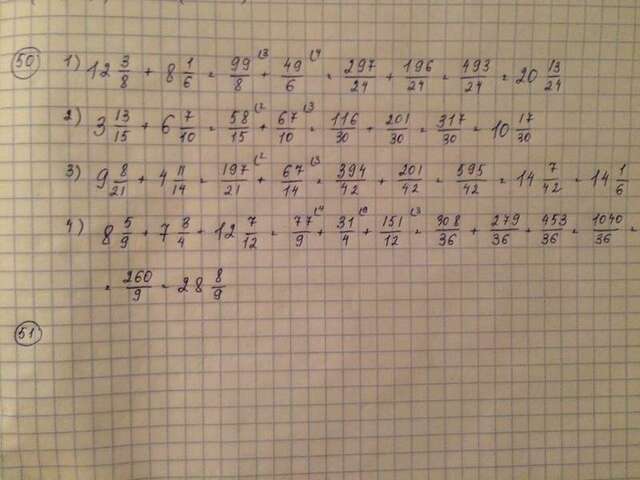 50 1) 12 3/8 + 8 1/6 = 99/8 (3 + 49/6 (4 = 297/24 + 196/24 = 493/24 = 20 13/24
2) 3 13/15 + 6 7/10 = 58/15 (2 + 67/10 (3 = 116/30 + 201/30 = 317/30 = 10 17/30
3) 9 8/21 + 4 11/14 = 197/21 (2 + 67/14 (3 = 394/42 + 201/42 = 595/42 = 14 7/42 = 14 1/6
4) 8 5/9 + 7 3/4 + 12 7/12 = 77/9 (4 + 31/4 (9 + 151/12 (3 = 308/36 + 279/36 + 453/36 = 1040/36 =
= 260/9 = 28 8/9
51